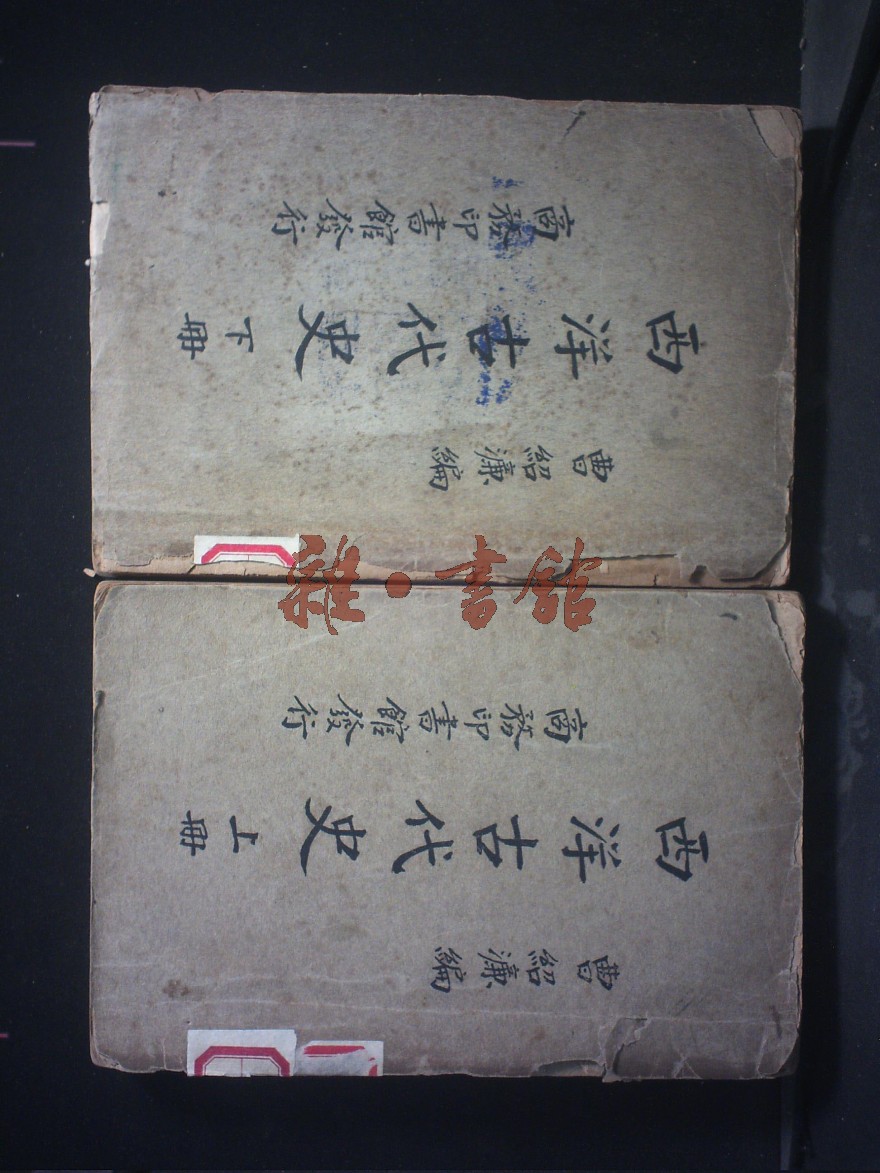 曹紹濂編
西洋古代史 上冊
商務印書館發行
曹紹濂編
西洋古代史 下冊
商務印書館發行
雜·書館